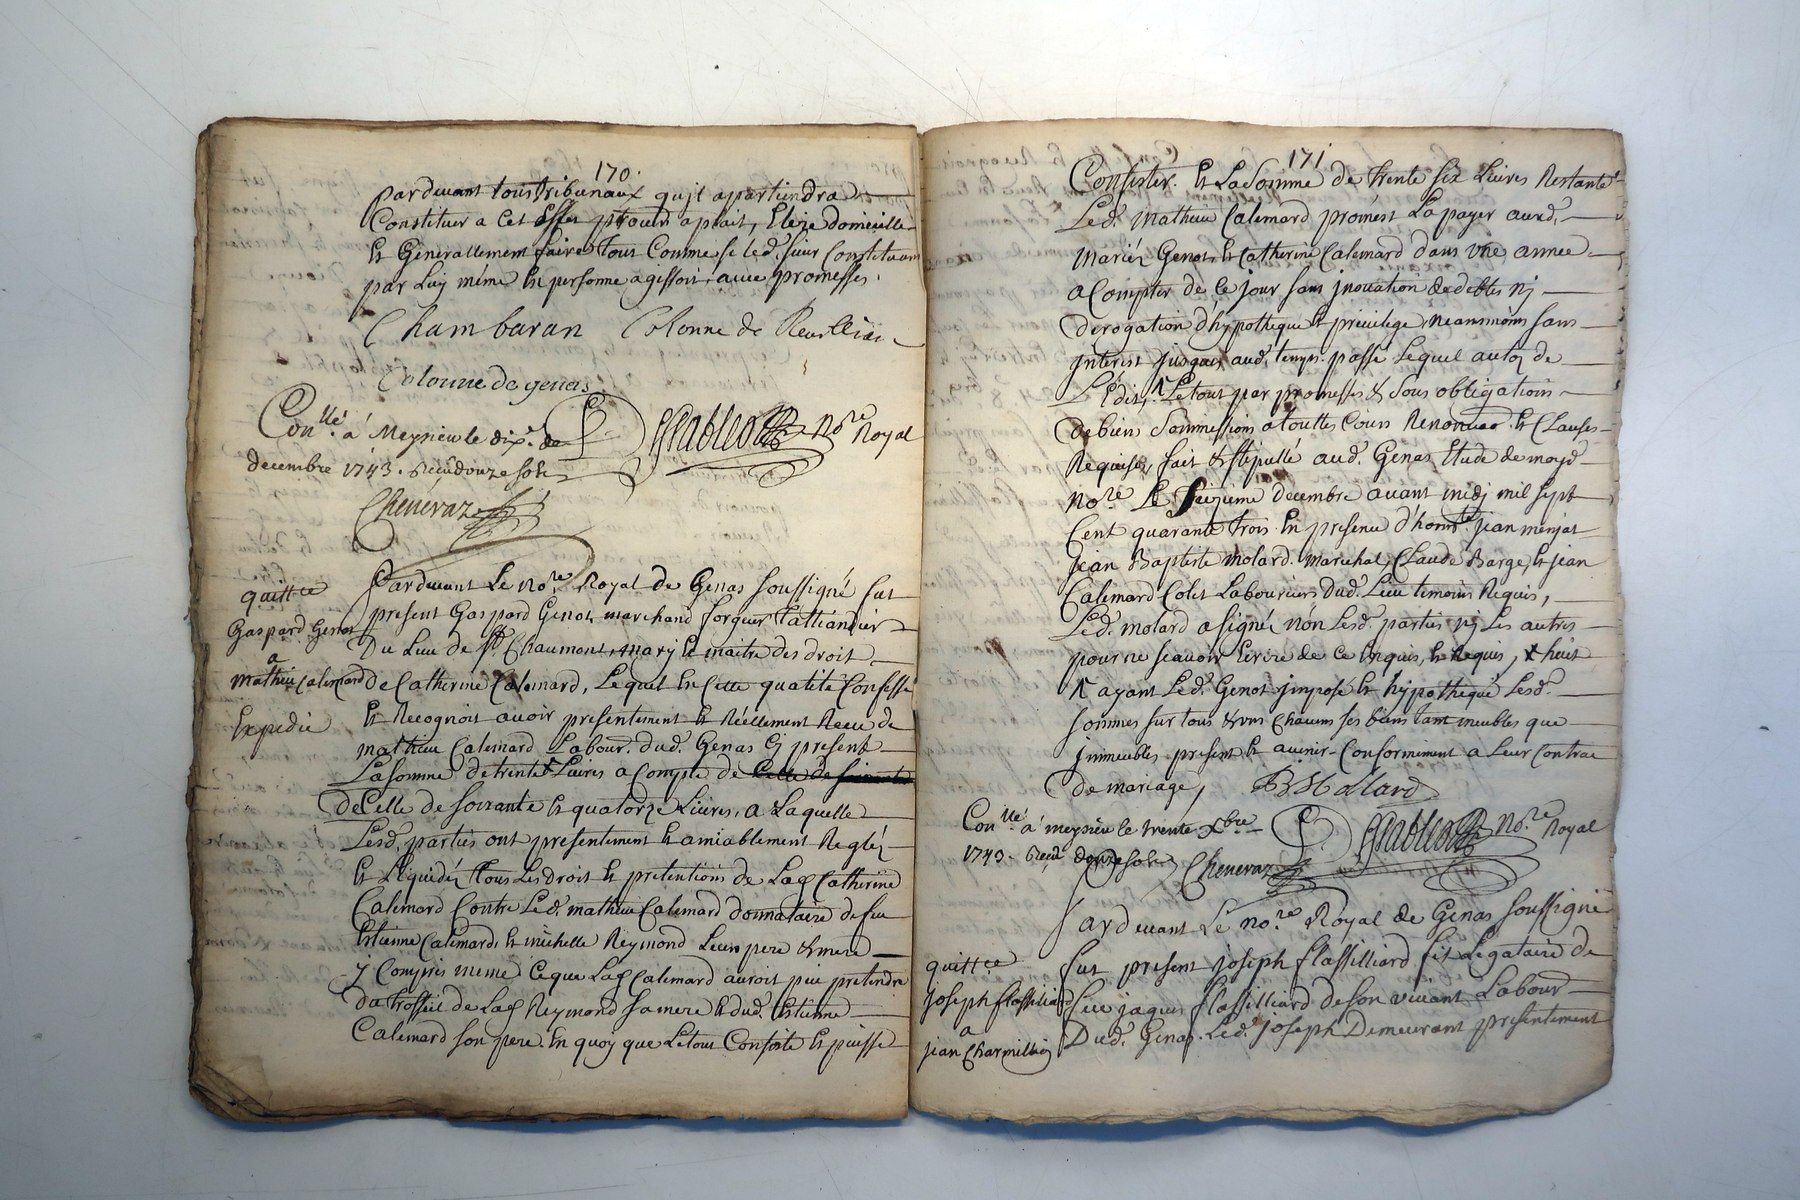 170.
pardevant tous tribunaux qu'jl apartiendra
Constituer a cet effet
Et Generallement faire tout Comme si led. sieur Constituant
par Luy méme En personne agissoit, avec promesses.
Chambaran Colonne de
Colonne de genas
Con.llé á Meysieu le dix.e de No.re Royal
decembre 1743. Reçu douze sols
Chenevaz
quitt.ce
Gaspard Genot
a
mathieu Calemard
Expedié
Pardevant Le no.re Royal de Genas soussigné fut
present Gaspard Genot, marchand forgeur Tailliandier
Du Lieu de S.t Chaumont, mary Et maitre des droit
de Catherine Calemard, Lequel En Cette qualité Confesse
Et Recognoit avoir presentement Et Réellement Receu de
mathieu Calemard Labour. dud. Genas Cy present
La somme de trente Livres a Compte de Celle de soixante
de Celle de soixante Et quatorze Livres, a Laquelle
Lesd. parties ont presentement Et amiablement Reglés
Et Liquidéz tous Les droit Et pretentions de Lad Catherine
Calemard Contre Led. mathieu Calemard donnataire de feu
Estienne Calemard, Et michelle Reymond Leurs pere & mere
y Compris méme Ce que Lad Calemard auroit peu pretendre
du trosseil de Lad Reymond sa mere Et dud. Estienne
Calemard son pere. En quoy que Le tout Consiste Et puisse
171
Consister. Et La somme de trente six Livres Restante
Led. mathieu Calemard promést La payer auxd.
mariéz Genot, Et Catherine Calemard dans une année
a Compter de Ce jour sans jnovation de debtes nj
dérogation d'hypotheque Et privilege, neansmoins sans
jnterest jusques aud. temps. passé Lequel au
L'Edit, Le tout par promesses & sous obligations
de biens soumissions a touttes Cours Renonceo Et Clauses
Requises, fait & stipullé aud. Genas Etude de moyd
no.re Le seizieme decembre avant midj mil sept
Cent quarante trois En presence d'honn.te jean menjat
jean Baptiste molard. marechal, Claude Barge, Et jean
Calemard Colet Laboureurs dud. Lieu temoins Requis,
Led. molard a signé non Lesd. parties nj Les autres
pour ne sçavoir Ecrire de Ce Enquis, Et Requis,
ayant Led. Genot jmposé Et hypothequé Lesd.
sommes sur tous Et Chacuns ses biens tant meubles que
jmmeubles, present Et avenir Conformement a Leur Contrac
de mariage, B Molard
Con.llé á meysieu le trente Xbre No.re Royal
1743. Reçu douze sols Chenevaz
quitt.ce
joseph flassilliard
a
jean Charmillion
Pardevant Le no.re Royal de Genas soussigné
fut present joseph flassilliard fils Legataire de
feu jaques flassilliard de son vivant Labour
Dud. Genas. Led. joseph Demeurant presentement